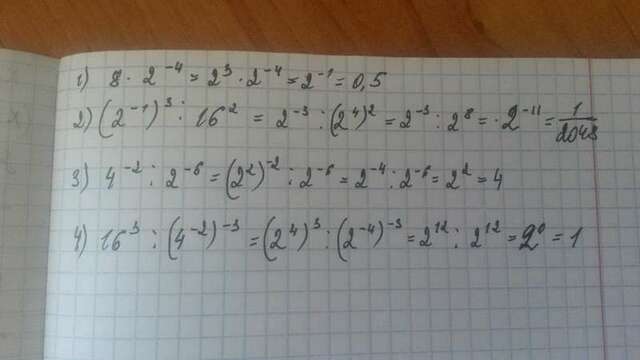 1) 8 · 2⁻⁴ = 2³ · 2⁻⁴ = 2⁻¹ = 0,5
2) (2⁻¹)³ : 16² = 2⁻³ : (2⁴)² = 2⁻³ : 2⁸ = 2⁻¹¹ = 1/2048
3) 4⁻² : 2⁻⁶ = (2²)⁻² : 2⁻⁶ = 2⁻⁴ : 2⁻⁶ = 2² = 4
4) 16³ : (4⁻²)⁻³ = (2⁴)³ : (2⁻⁴)⁻³ = 2¹² : 2¹² = 2⁰ = 1